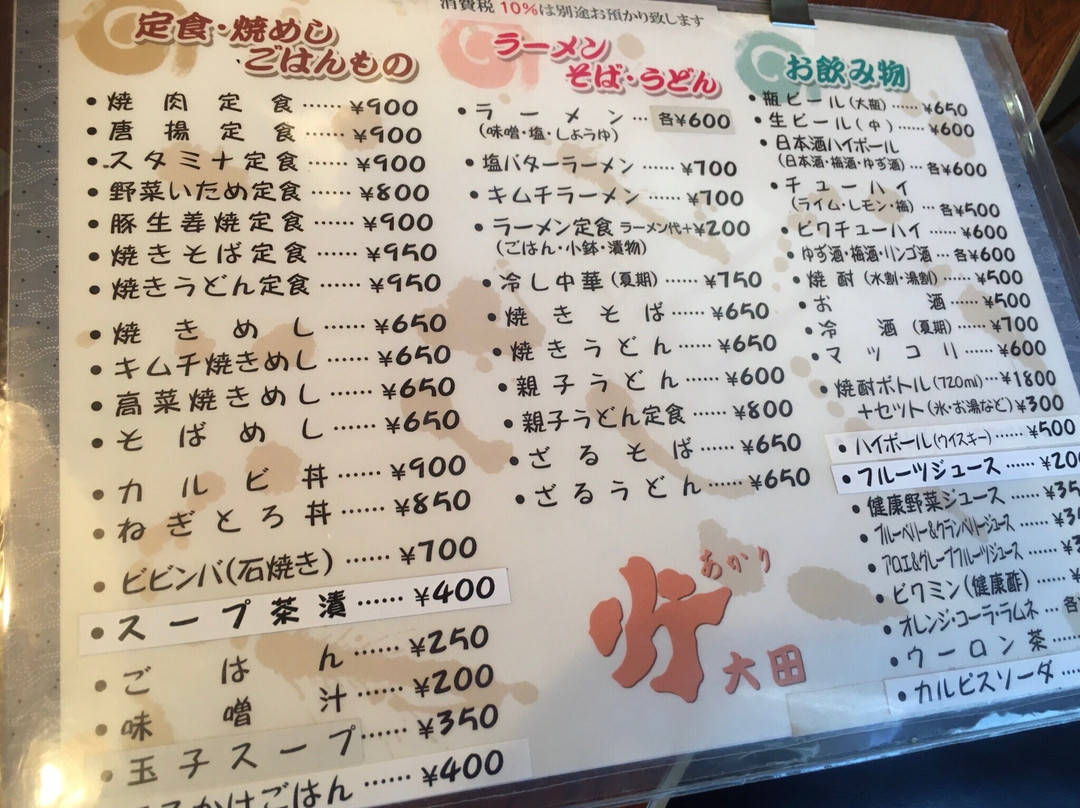 消費税 10%は別途お預かり致します
定食・焼めし
ごはんもの
・焼肉定食……¥900
・唐揚定食……¥900
・スタミナ定食……¥900
・野菜いため定食……¥800
・豚生姜焼定食……¥900
・焼きそば定食……¥950
・焼きうどん定食……¥950
・焼きめし……¥650
・キムチ焼きめし……¥650
・高菜焼きめし……¥650
・そばめし……¥650
・カルビ丼……¥900
・ねぎとろ丼……¥850
・ビビンバ(石焼き)……¥700
・スープ茶漬……¥400
・ごはん……¥250
・味噌汁……¥200
・玉子スープ……¥350
かけごはん……¥400
ラーメン
そば・うどん
・ラーメン…各¥600
(味噌・塩・しょうゆ)
・塩バターラーメン……¥700
・キムチラーメン……¥700
・ラーメン定食 ラーメン代+¥200
(ごはん・小鉢・漬物)
・冷し中華(夏期)……¥750
・焼きそば……¥650
・焼きうどん……¥650
・親子うどん……¥600
・親子うどん定食……¥800
・ざるそば……¥650
・ざるうどん……¥650
あかり
灯
大田
お飲み物
・瓶ビール(大瓶)……¥650
・生ビール(中)……¥600
・日本酒ハイボール
(日本酒・梅酒・ゆず酒)…各¥600
・チューハイ
(ライム・レモン・梅)…各¥500
・ビワチューハイ……¥600
・ゆず酒・梅酒・リンゴ酒…各¥600
・焼酎(水割・湯割)……¥500
・お酒……¥500
・冷酒(夏期)……¥700
・マッコリ……¥600
・焼酎ボトル(720ml)…¥1800
+セット(氷・お湯など)¥300
・ハイボール(ウイスキー)……¥500
・フルーツジュース……¥200
・健康野菜ジュース……¥35
・ブルーベリー&クランベリージュース……¥3
・アロエ&グレープフルーツジュース……¥3
・ビワミン(健康酢)……¥
・オレンジ・コーラ・ラムネ…各
・ウーロン茶……
・カルピスソーダ……